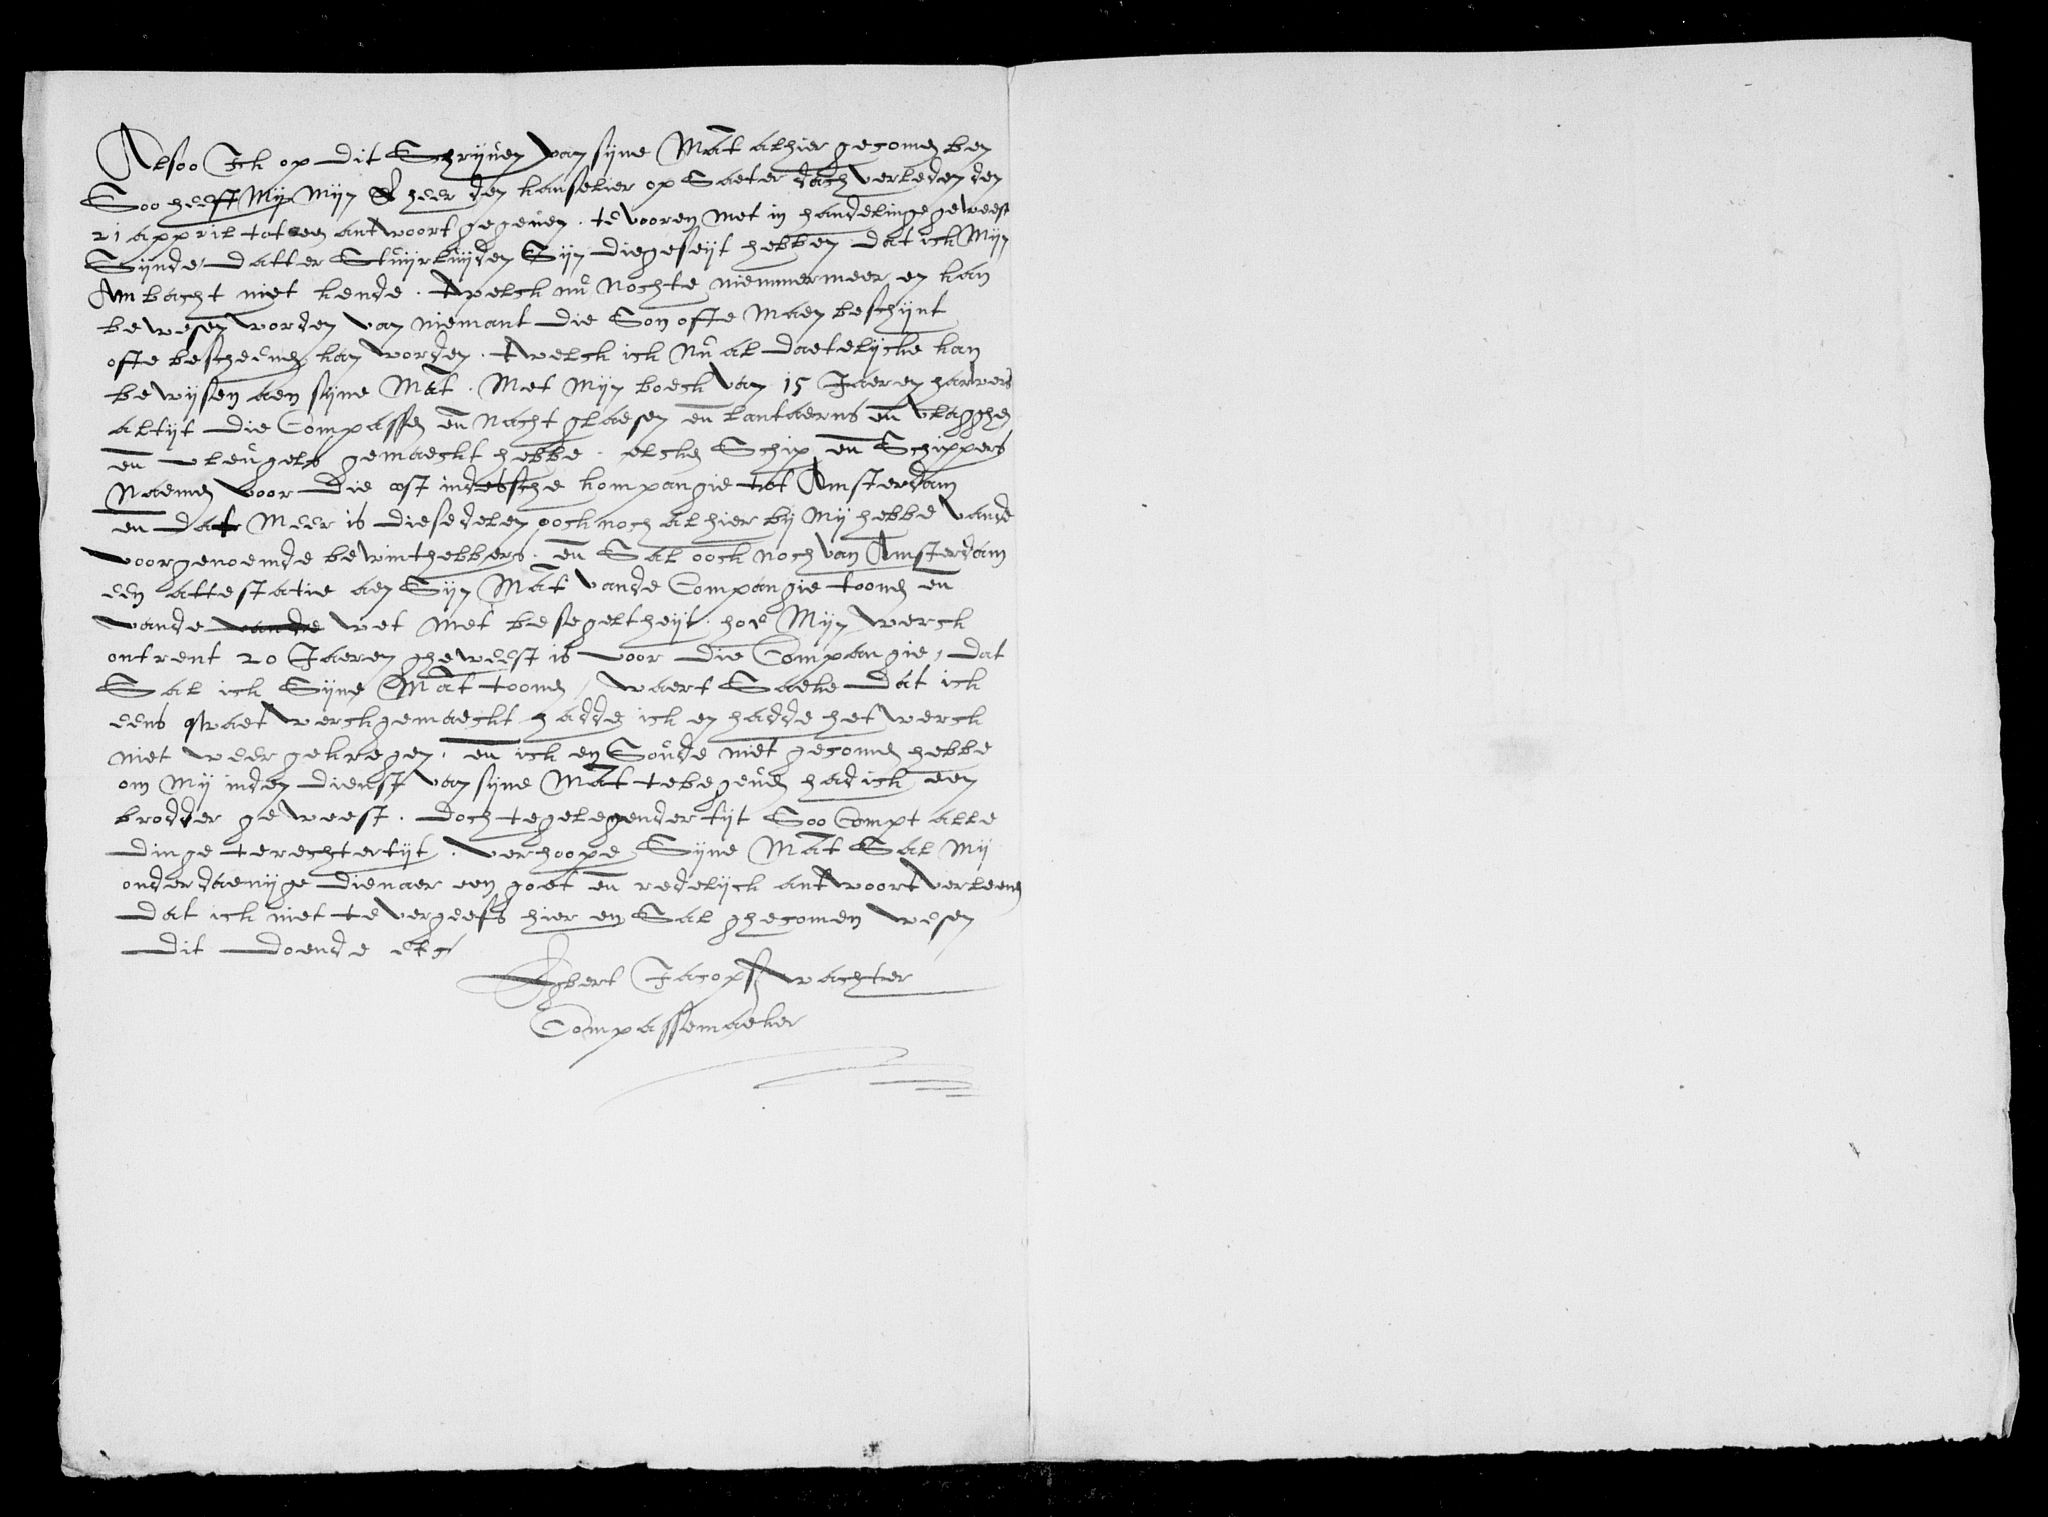 Alsoo Ick op dit Schrijven van sijne Mat alhier gecomen ben
Soo heeft Mij Mijn heer den kanselier op Saeter dach verleden den
21 appril tot een antwoort gegeven . te vooren Met in handelinge geweest
Sijnde datter Stuijrluijden Sijn die geseijt hebben dat ick Mijn
Ambacht niet kende . twelck nu Nochte niemmermeer en kan
bewesen worden van niemant die Son ofte Maen beschijnt
ofte bescheenen kan worden . twelck ick Nu al daetelijcke kan
bewijsen aen sijne Mat . Met Mijn boeck van 15 Jaeren herwers
altijt die Compassen en Nacht glaesen en lantaerns en vlagghen
en vleugels gemaeckt hebbe . elcken Schip en Schippers
Naemen voor die ost indessche kompangie tot Amsterdam
en dat Meer is dieselden oock noch alhier bij Mij hebbe vande
voorgenoemde bewinthebbers . en Sal oock noch van Amsterdam
een attestatie aen Sijn Mat vande Compangie toonen en
vande vande wet Met besegeltheijt . hoe Mijn werck
ontrent 20 Jaeren gheweest is voor die Compangie, dat
Sal ick Sijne Mat toonen / waert Saeke dat ick
eens qwaet werck gemaeckt hadde ick en hadde het werck
niet weer gekregen . en ick en Soude niet gecomen hebbe
om Mij inden dienst van sijne Mat te begeven had ick een
brodder geweest . doch te gelegender tijt Soo Compt alle
dinge te rechter tijt . verhoope Sijne Mat Sal Mij
onderdaenijge dienaer een goet en redelijck antwoort verleenen
dat ick niet te vergeefs hier en Sal ghecomen wesen
dit doende etc
Egbert Jacops wachter
Compassemaeker